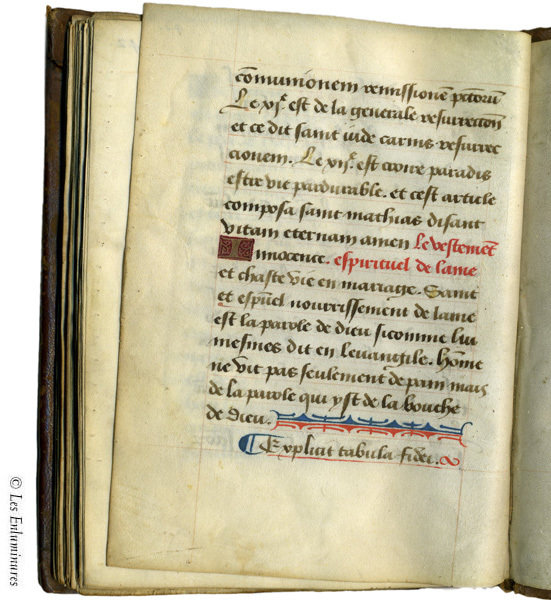 com̄unionem remissionē pc̄torū
Le xjᵉ est de la generale resurrection
et ce dit saint iude carnis resurrec
cionem. Le xijᵉ est croire paradis
estre vie pardurable. et cest article
composa saint mathias disant
vitam eternam amen le vestemēt
Innocence. espirituel de lame
et chaste vie en mariage. Saint
et esp̄uel nourrissement de lame
est la parole de dieu sicomme luy
mesmes dit en levangile. home
ne vit pas seulement de pain mais
de la parole qui yst de la bouche
de dieu.
Explicit tabula fidei.
© Les Enluminures